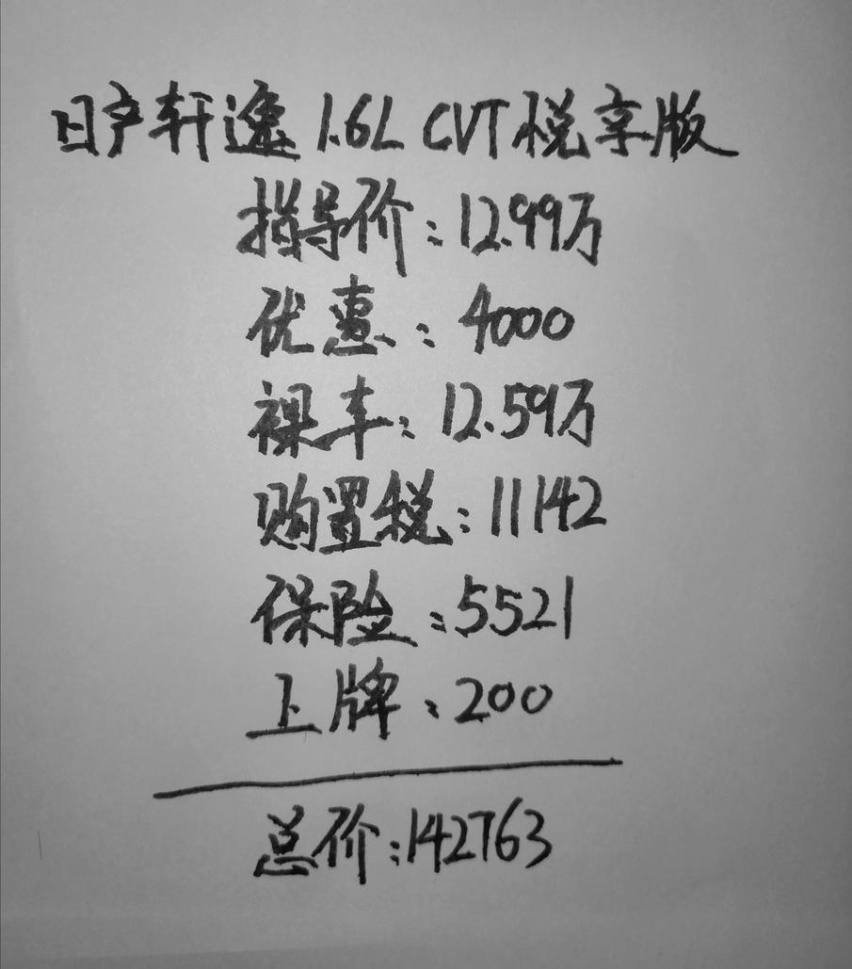 日产轩逸 1.6L CVT 悦享版
指导价:12.99万
优惠:4000
裸车:12.59万
购置税:11142
保险:5521
上牌:200
总价:142763